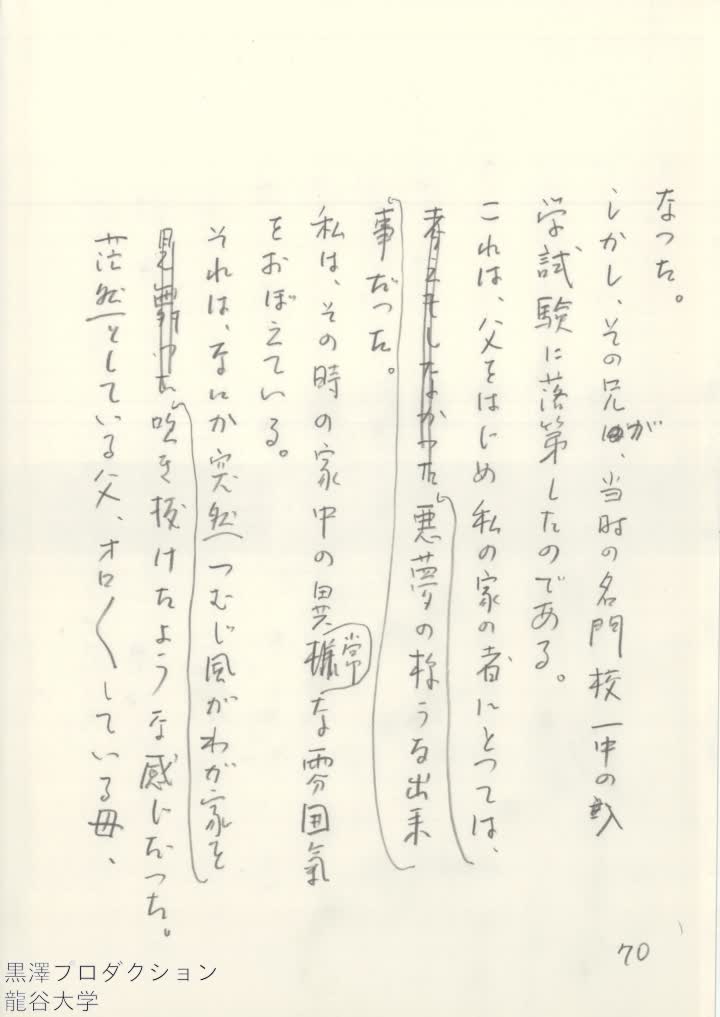 なった。
しかし、その兄が、当時の名門校一中の入
学試験に落第したのである。
これは、父をはじめ私の家の者にとっては、
考えもしなかった悪夢の様うな出来
事だった。
私は、その時の家中の異様常な雰囲氣
をおぼえている。
それは、なにか突然つむじ風がわが家を
吹き抜けたような感じだった。
茫然としている父、オロ〱している母、
70
黒澤プロダクション
龍谷大学